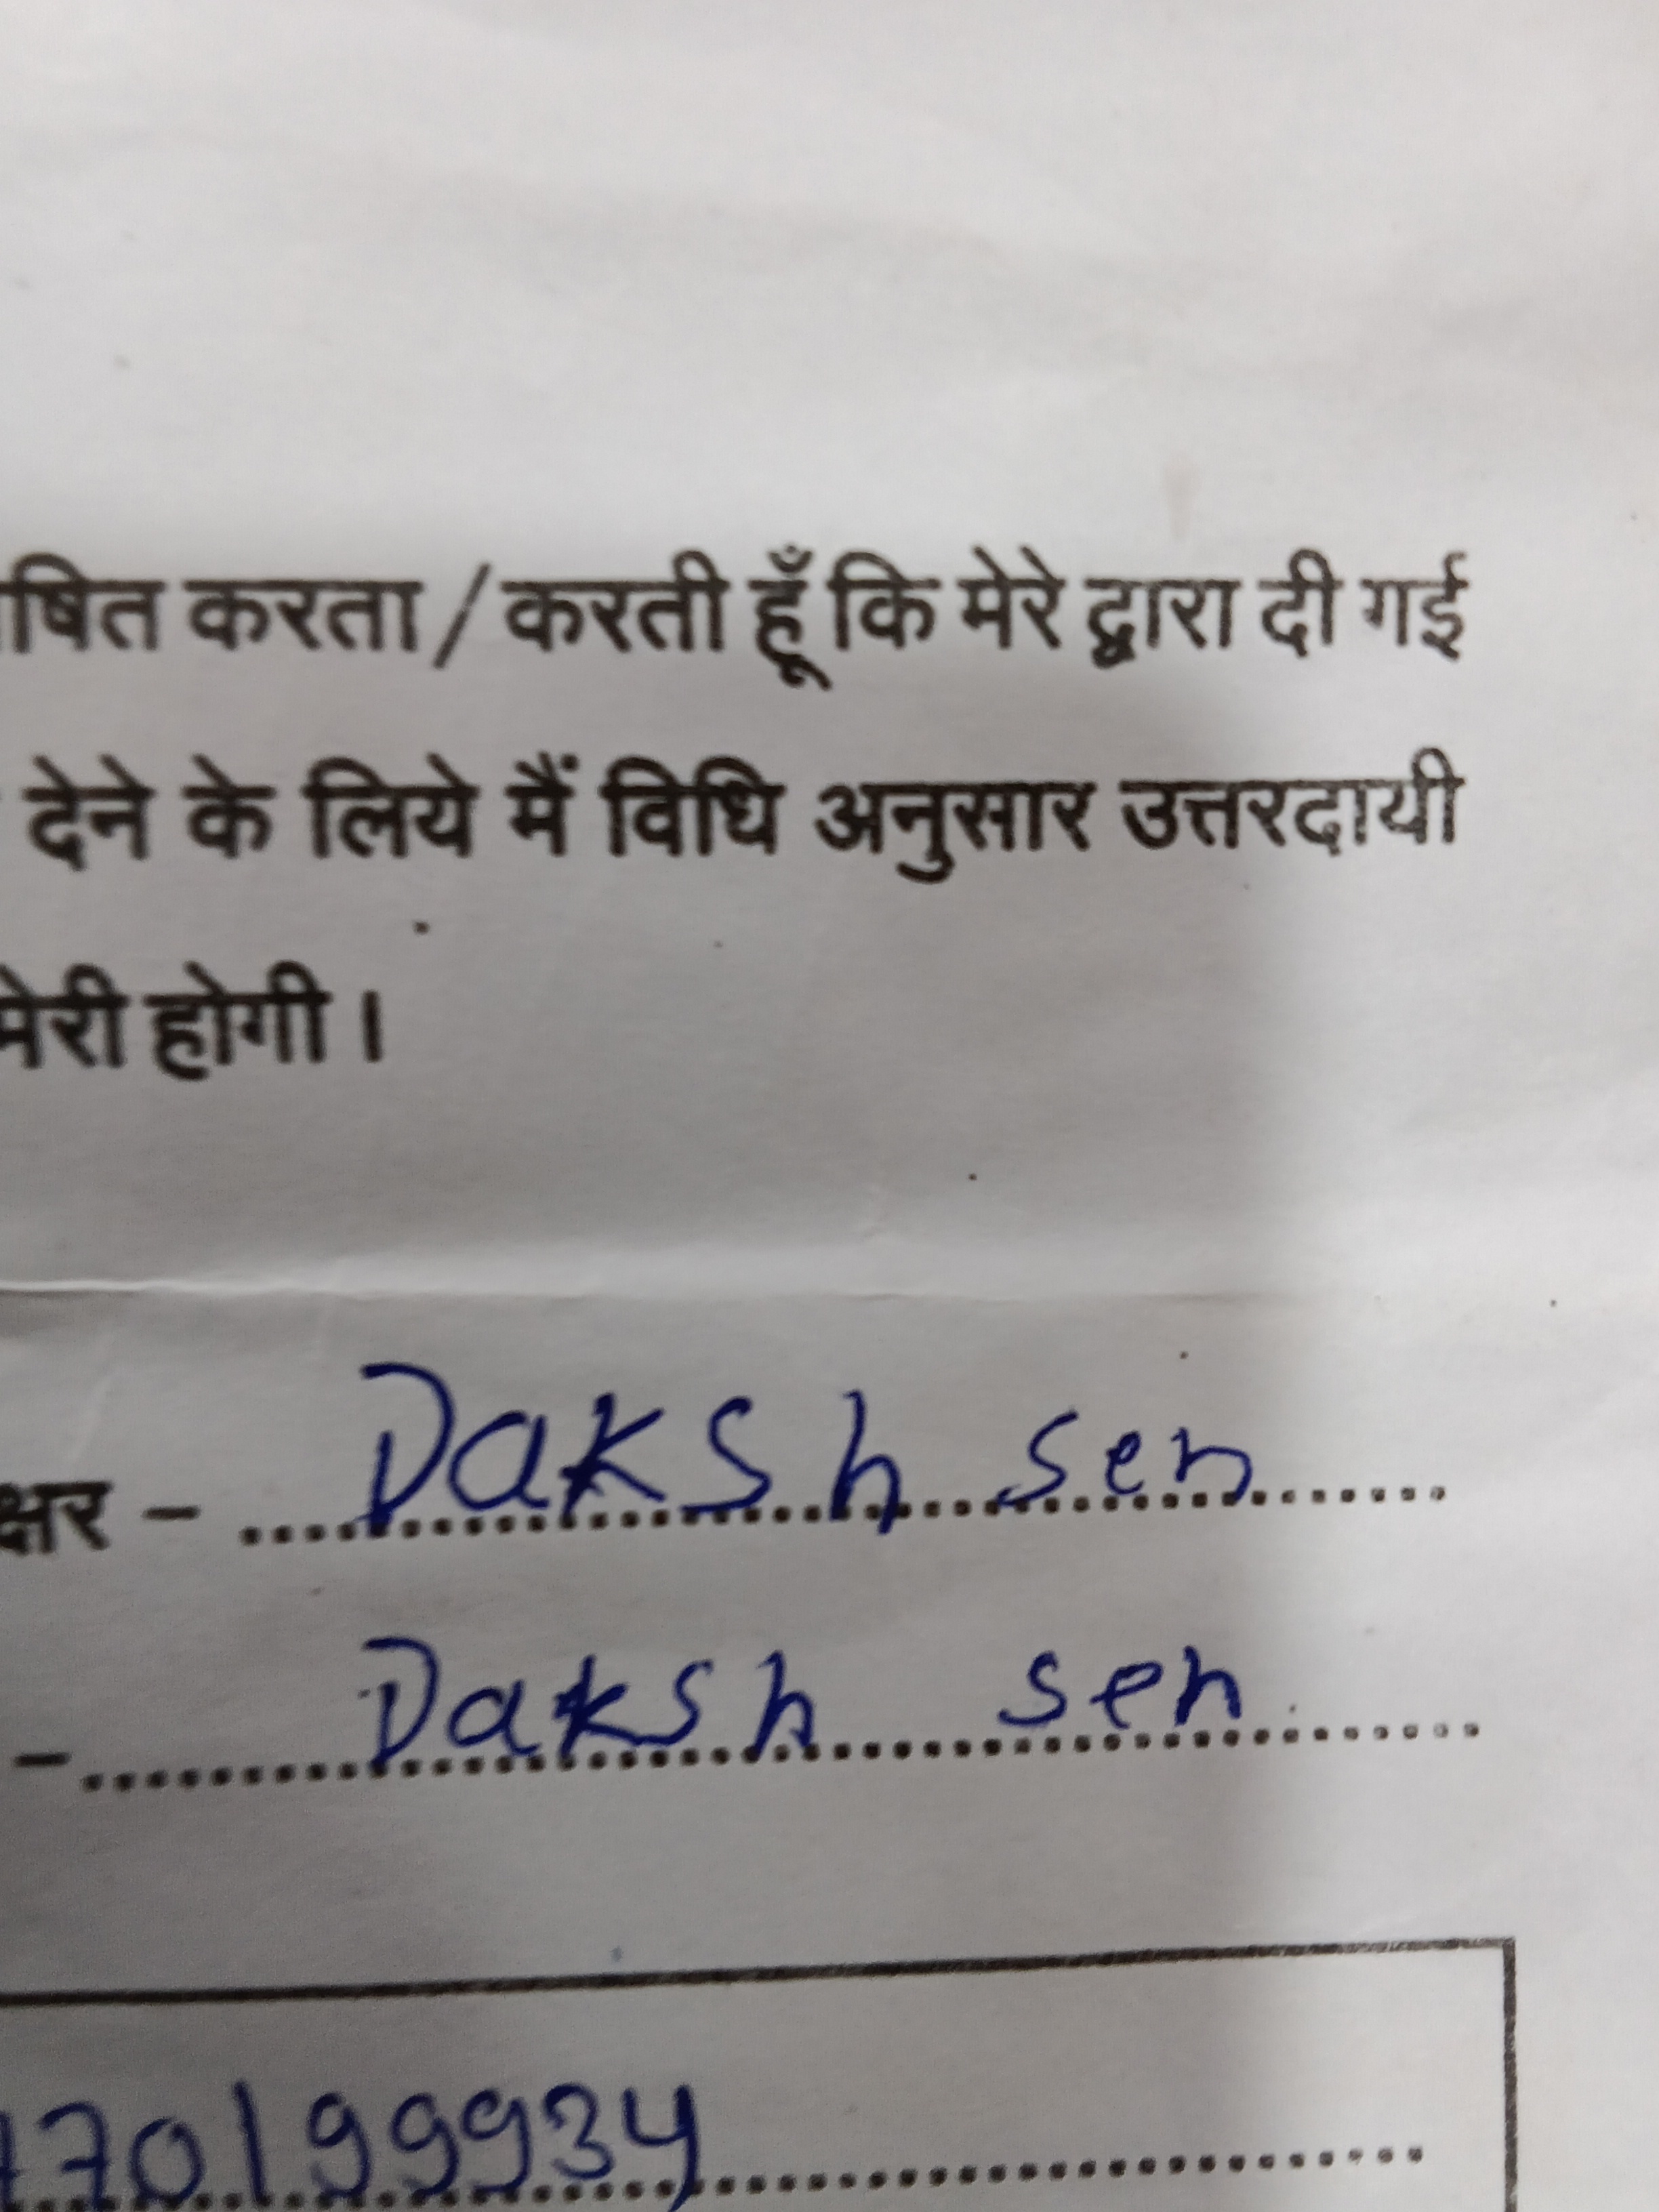 षित करता/करती हूँ कि मेरे द्वारा दी गई
देने के लिये मैं विधि अनुसार उत्तरदायी
मेरी होगी।
क्षर – Daksh sen
– Daksh sen
70199934